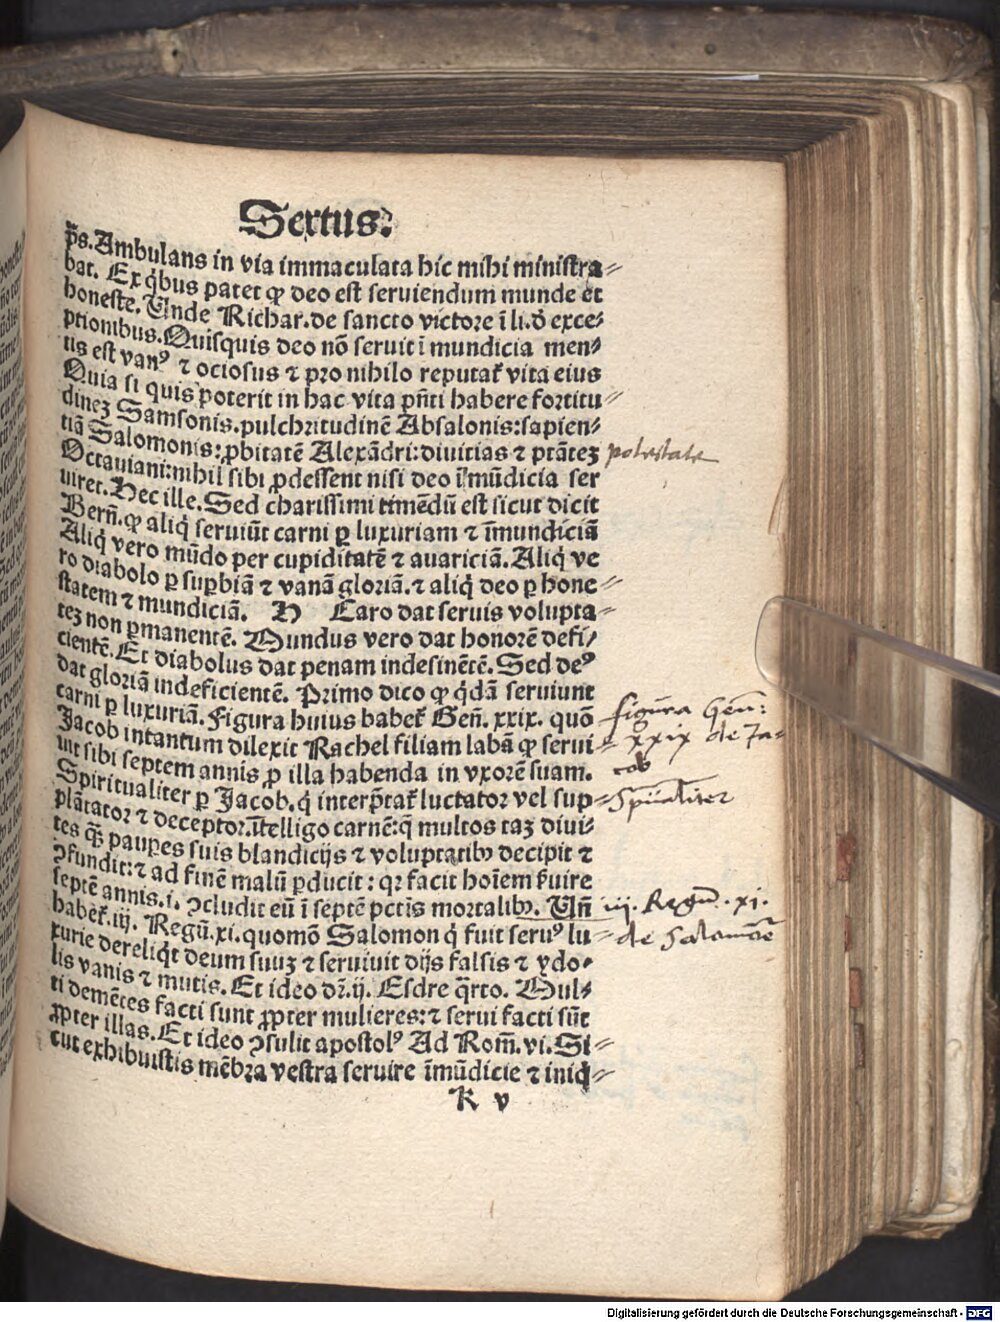 Sextus.
ps̄. Ambulans in via immaculata hic mihi ministra⸗
bat. Ex q̇bus patet ꝙ deo est seruiendum munde et
honeste. Unde Richar. de sancto victore ī li. d̓ exce⸗
ptionibus. Quisquis deo nō seruit ī mundicia men⸗
tis est vanꝰ ⁊ ociosus ⁊ pro nihilo reputat᷑ vita eius
Quia si quis poterit in hac vita pn̄ti habere fortitu⸗
dineꝫ Samsonis. pulchritudinē Absalonis: sapien⸗
tiā Salomonis: ꝓbitatē Alexādri: diuitias ⁊ ptāteꝫ potestate
Octauiani: nihil sibi ꝓdessent nisi deo ī mūdicia ser
uiret. Hec ille. Sed charissimi timēdū est sicut dicit
Bern̄. ꝙ aliq̇ seruiūt carni ꝑ luxuriam ⁊ īmundiciā
Aliq̇ vero mūdo per cupiditatē ⁊ auariciā. Aliq̇ ve
ro diabolo ꝑ suꝑbiā ⁊ vanā gloriā. ⁊ aliq̇ deo ꝑ hone⸗
statem ⁊ mundiciā. H Caro dat seruis volupta⸗
teꝫ non ꝑmanentē. Mundus vero dat honorē defi⸗
cientē. Et diabolus dat penam indesinētē. Sed deꝰ
dat gloriā indeficientē. Primo dico ꝙ q̇dā seruiunt
carni ꝑ luxuriā. Figura huius habet᷑ Gen̄. xxix. quō figura Gen̄:
Jacob intantum dilexit Rachel filiam labā ꝙ serui⸗ xxix de Ja⸗
uit sibi septem annis ꝓ illa habenda in vxorē suam. cob
Spiritualiter ꝑ Jacob. q̇ interp̄tat᷑ luctator vel sup⸗ Spūaliter
plātator ⁊ deceptor. ītelligo carnē: q̄ multos taꝫ diui⸗
tes ꝙ̄ pauꝑes suis blandicijs ⁊ voluptatibꝰ decipit ⁊
ꝯfundit: ⁊ ad finē malū ꝑducit: qꝛ facit hoīem ẜuire
septē annis. i. ꝯcludit eū ī septē pctīs mortalibꝰ. Un̄ iij. Regū. xi.
habet᷑. iij. Regū. xi. quomō Salomon q̇ fuit seruꝰ lu⸗ de Salamōe
xurie dereliq̇t deum suuꝫ ⁊ seruiuit dijs falsis ⁊ ydo⸗
lis vanis ⁊ mutis. Et ideo dr̄. ij. Esdre q̄rto. Mul⸗
ti demētes facti sunt ꝓpter mulieres: ⁊ serui facti sūt
ꝓpter illas. Et ideo ꝯsulit apostolꝰ Ad Rom̄. vi. Si⸗
cut exhibuistis mēbra vestra seruire īmūdicie ⁊ iniq̇⸗
K v
Digitalisierung gefördert durch die Deutsche Forschungsgemeinschaft - DFG